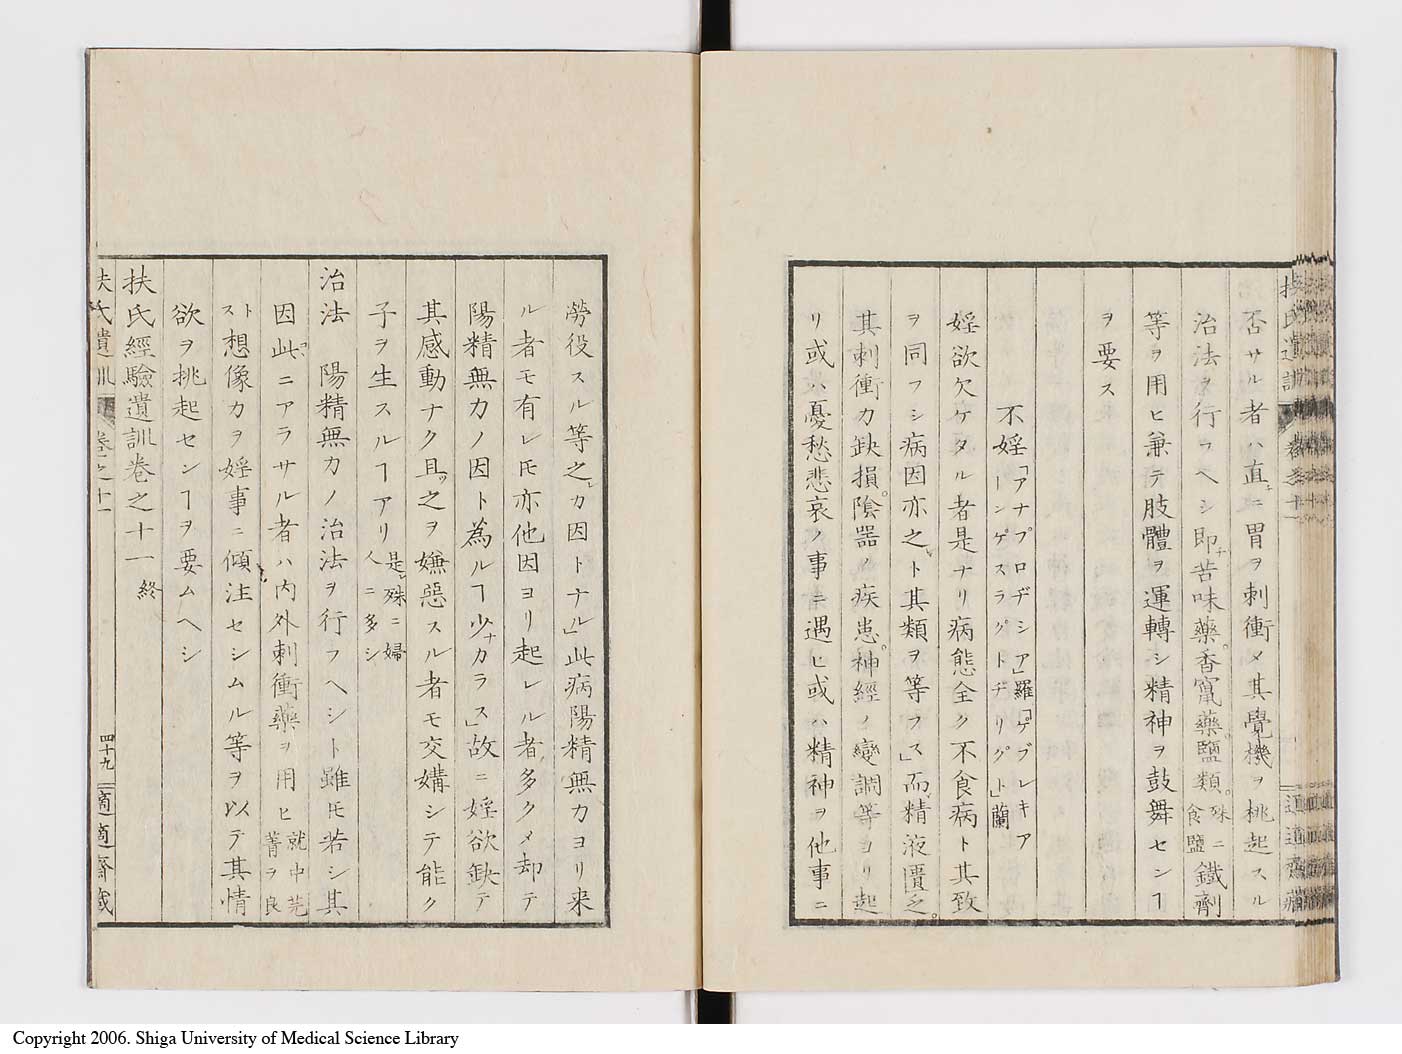 否サル者ハ直ニ胃ヲ刺衝メ其覺機ヲ桃起スル
治法ヲ行フヘシ即チ苦味藥。香竄藥。鹽類。殊ニ食鹽鐵劑
等ヲ用ヒ兼テ肢體ヲ運轉シ精神ヲ鼓舞センヿ
ヲ要ス
不婬「アナプロヂシア」羅「ゲブレキアーンゲスラグトヂリグト」蘭
婬欲欠ケタル者是ナリ病態全ク不食病ト其致
ヲ同フシ病因亦之ト其類ヲ等フス」而精液匱乏。
其刺衝力缺損。陰器ノ疾患。神經ノ變調等ヨリ起
リ或ハ憂愁悲哀ノ事ニ遇ヒ或ハ精神ヲ他事ニ
扶氏遺訓
勞役スル等之カ因トナル」此病陽精無力ヨリ来
ル者モ有レ𪜈亦他因ヨリ起レル者多クメ却テ
陽精無力ノ因ト為ルヿ少ナカラス」故ニ婬欲缺テ
其感動ナク且ツ之ヲ嫌惡スル者モ交媾シテ能ク
子ヲ生スルヿアリ是レ殊ニ婦人ニ多シ
治法 陽精無力ノ治法ヲ行フヘシト雖𪜈若シ其
因此ニアラサル者ハ内外刺衝藥ヲ用ヒ就中芫菁ヲ良
スト想像力ヲ婬事ニ傾注セシムル等ヲ以テ其情
欲ヲ挑起センヿヲ要ムヘシ
扶氏經驗遺訓巻之十一 終
扶氏遺訓 巻之十一 四十九 適適齋藏
Copyright 2006. Shiga University of Medical Science Library